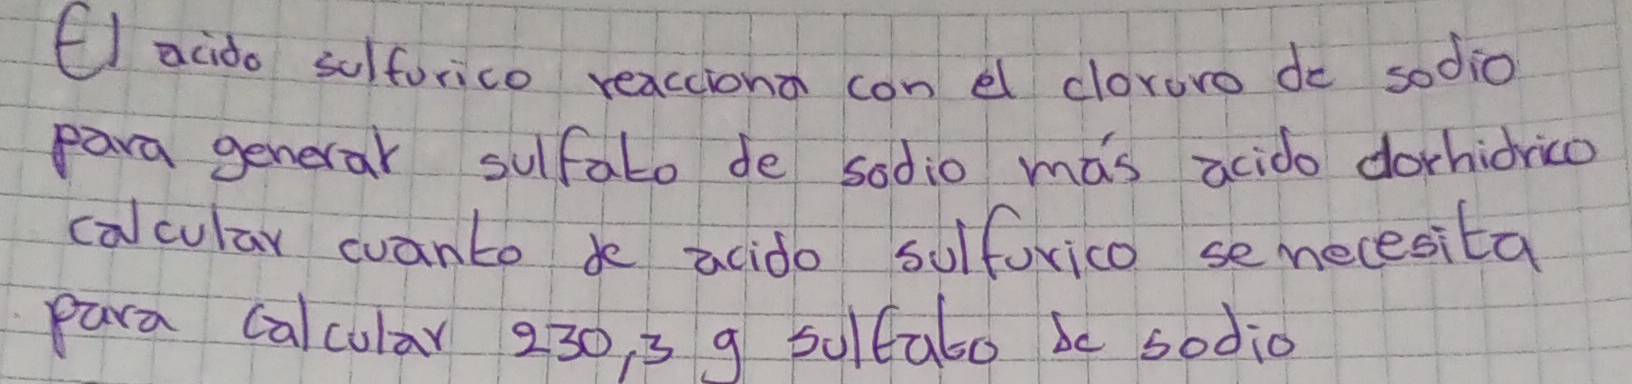 El acido sulfurico reacciona con el cloruro de sodio
para generar sulfato de sodio más acido clorhidrico
calcular cuanto de acido sulfurico se necesita
para calcular 230,3 g sulfato de sodio